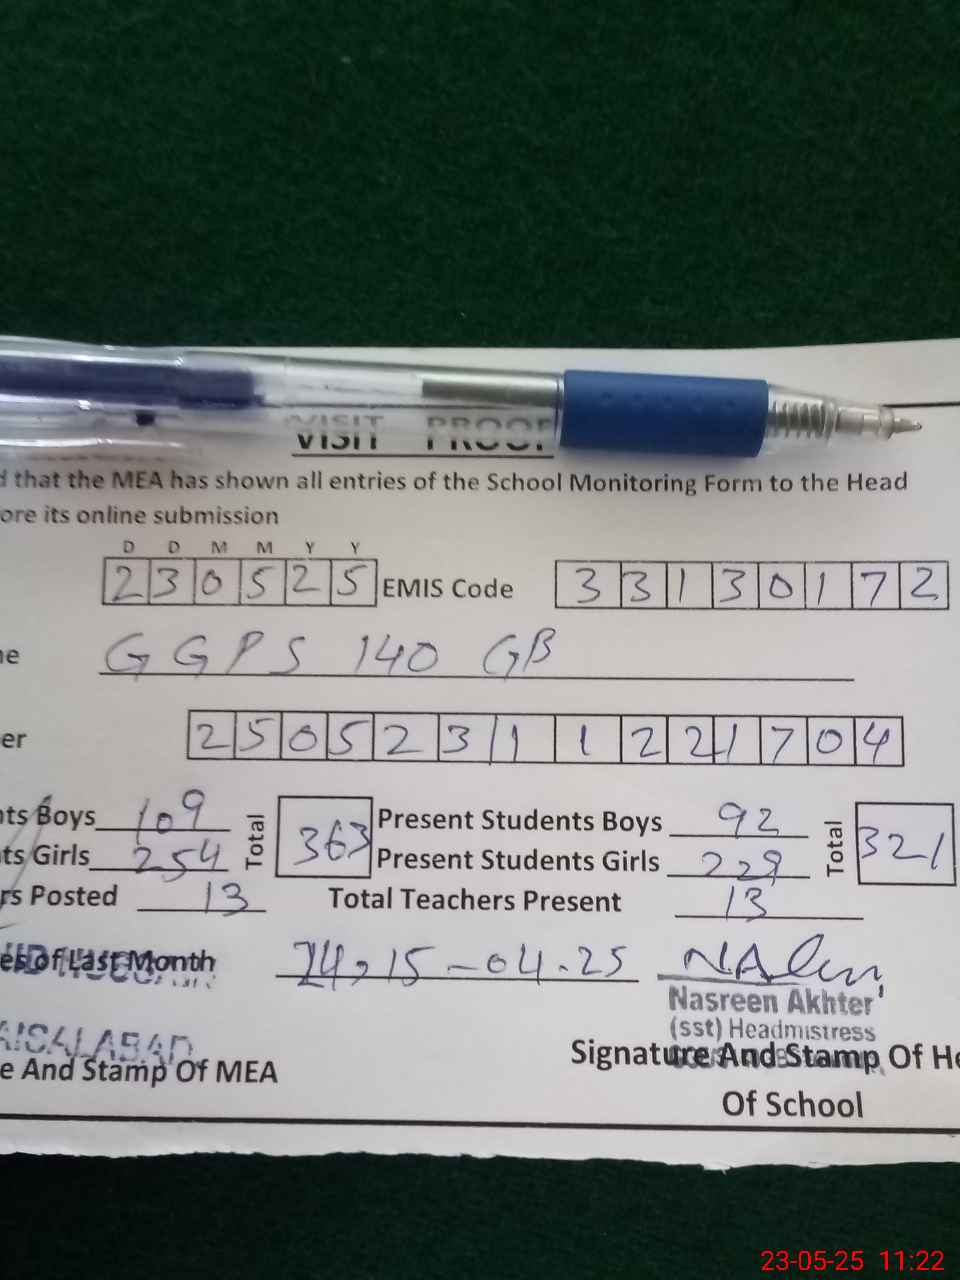 VISIT PROOF
d that the MEA has shown all entries of the School Monitoring Form to the Head
ore its online submission
D D M M Y Y
2 3 0 5 2 5 EMIS Code 3 3 1 3 0 1 7 2
ne G G P S 140 GB
er 2 5 0 5 2 3 1 1 2 2 1 7 0 4
nts Boys 109 Total 363 Present Students Boys 92 Total 321
ts Girls 254 Present Students Girls 229
rs Posted 13 Total Teachers Present 13
es of Last Month 15-04-25
Nasreen Akhter
(sst) Headmistress
AISALABAD
e And Stamp Of MEA Signature And Stamp Of He
Of School
23-05-25 11:22